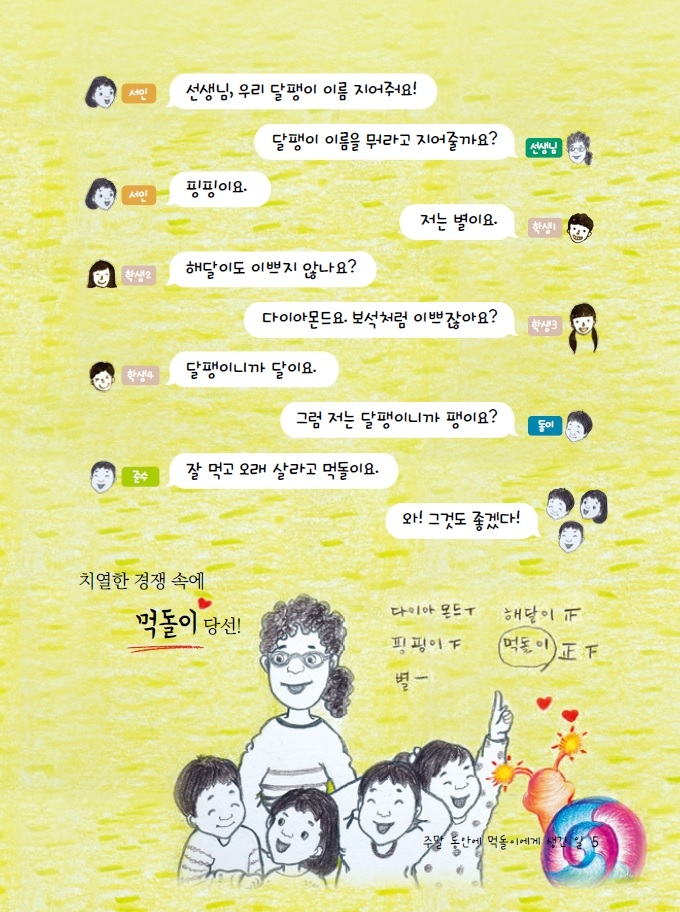 서인
선생님, 우리 달팽이 이름 지어줘요!
달팽이 이름을 뭐라고 지어줄까요?
선생님
서인
핑핑이요.
저는 별이요.
학생1
학생2
해달이도 이쁘지 않나요?
다이아몬드요. 보석처럼 이쁘잖아요?
학생3
학생4
달팽이니까 달이요.
그럼 저는 달팽이니까 팽이요?
둥이
준수
잘 먹고 오래 살라고 먹돌이요.
와! 그것도 좋겠다!
치열한 경쟁 속에
먹돌이 당선!
다이아몬드 ㅜ
해달이
핑핑이
먹돌이 正
별 一
주말 동안에 먹돌이에게 생긴 일 5